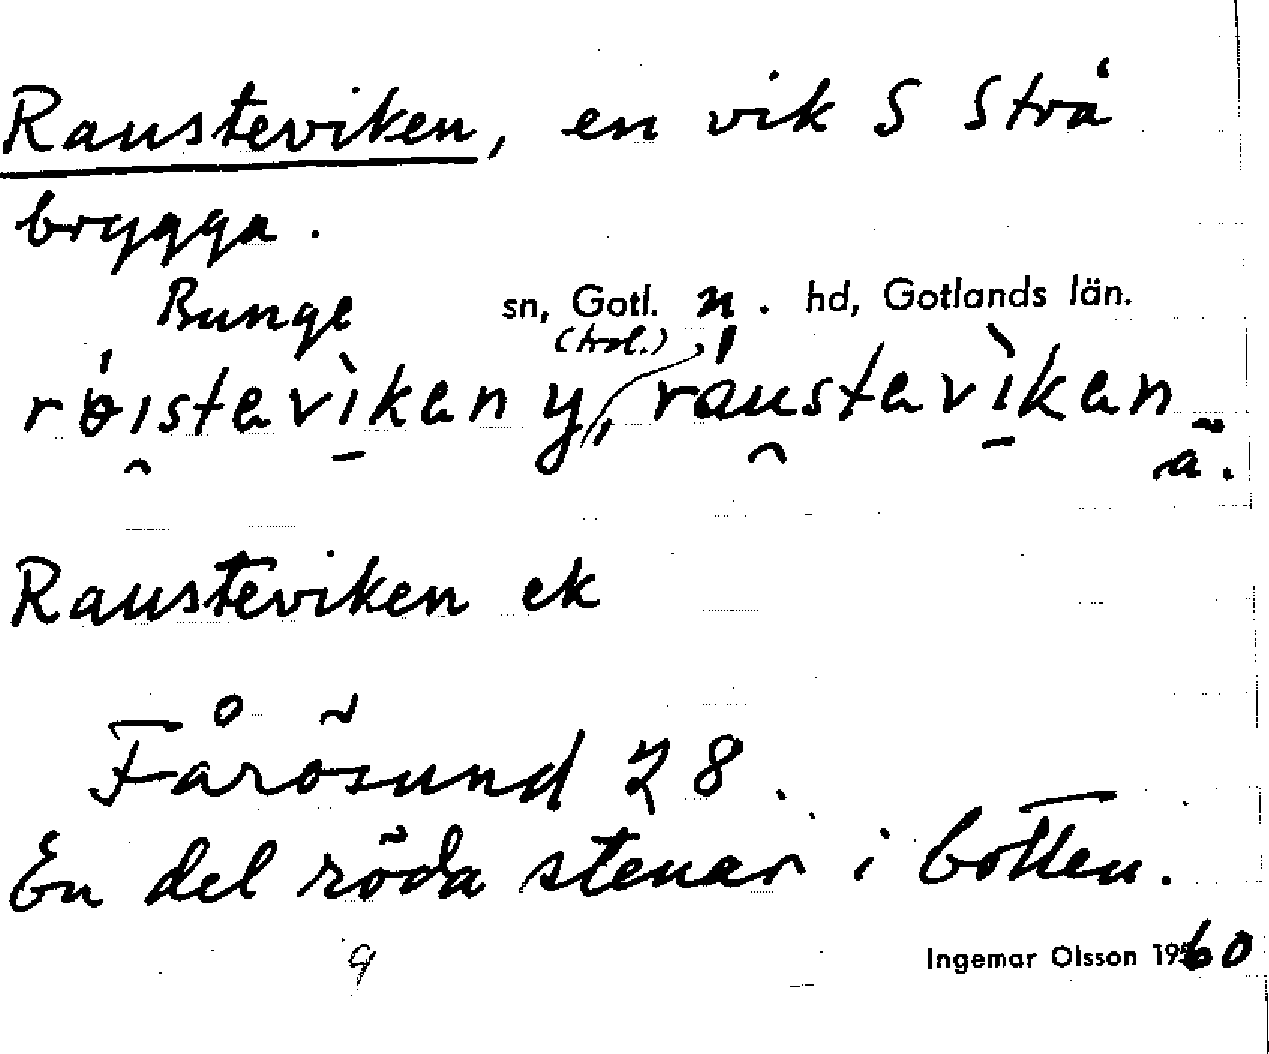 Rausteviken, en vik S Strå
brygga.
Bunge sn, Gotl. n. hd, Gotlands län.
rɵ́istavìkan y, (trol.) ráustavìkan
ä.
Rausteviken ek
Fårösund 28.
En del röda stenar i botten.
9
Ingemar Olsson 1960